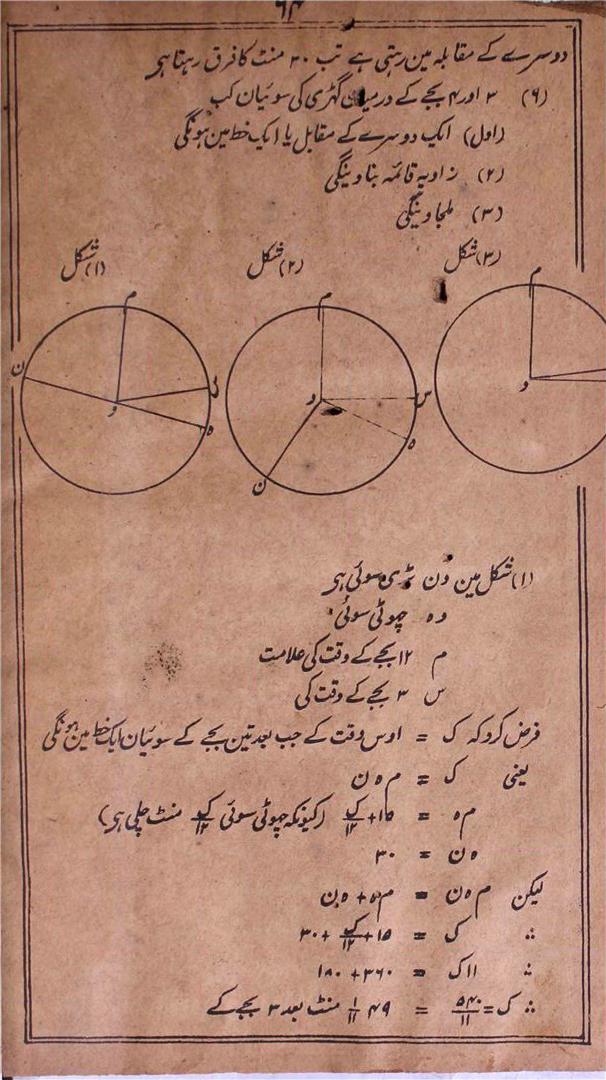 ۶۴
دوسرے کے مقابلہ مین رہتی ہے تب ۳۰ منٹ کا فرق رہتا ہی
(۶) ۳ اور ۴ بجے کے درمیان گھڑی کی سوئیان کب
(اول) ایک دوسرے کے مقابل یا ایک خط مین ہونگی
(۲) زاویہ قائمہ بناوینگی
(۳) ملجاوینگی
(۳) شکل
(۲) شکل
(۱) شکل
م
و
م
و
س
ہ
ن
م
ن
و
س
ہ
(۱) شکل مین ون بڑی سوئی ہی
وہ چھوٹی سوئی
م ۱۲ بجے کے وقت کی علامت
س ۳ بجے کے وقت کی
فرض کرو کہ ک = اوس وقت کے جب بعد تین بجے کے سوئیان ایک خط مین ہونگی
یعنی ک = م ہ ن
م ہ = ۱۵ + ک/۱۲ (کیونکہ چھوٹی سوئی ک/۱۲ منٹ چلی ہی)
ہ ن = ۳۰
لیکن م ہ ن = م ہ + ہ ن
∴ ک = ۱۵ + ک/۱۲ + ۳۰
∴ ۱۱ک = ۳۶۰ + ۱۸۰
∴ ک = ۵۴۰/۱۱ = ۴۹ ۱/۱۱ منٹ بعد ۳ بجے کے